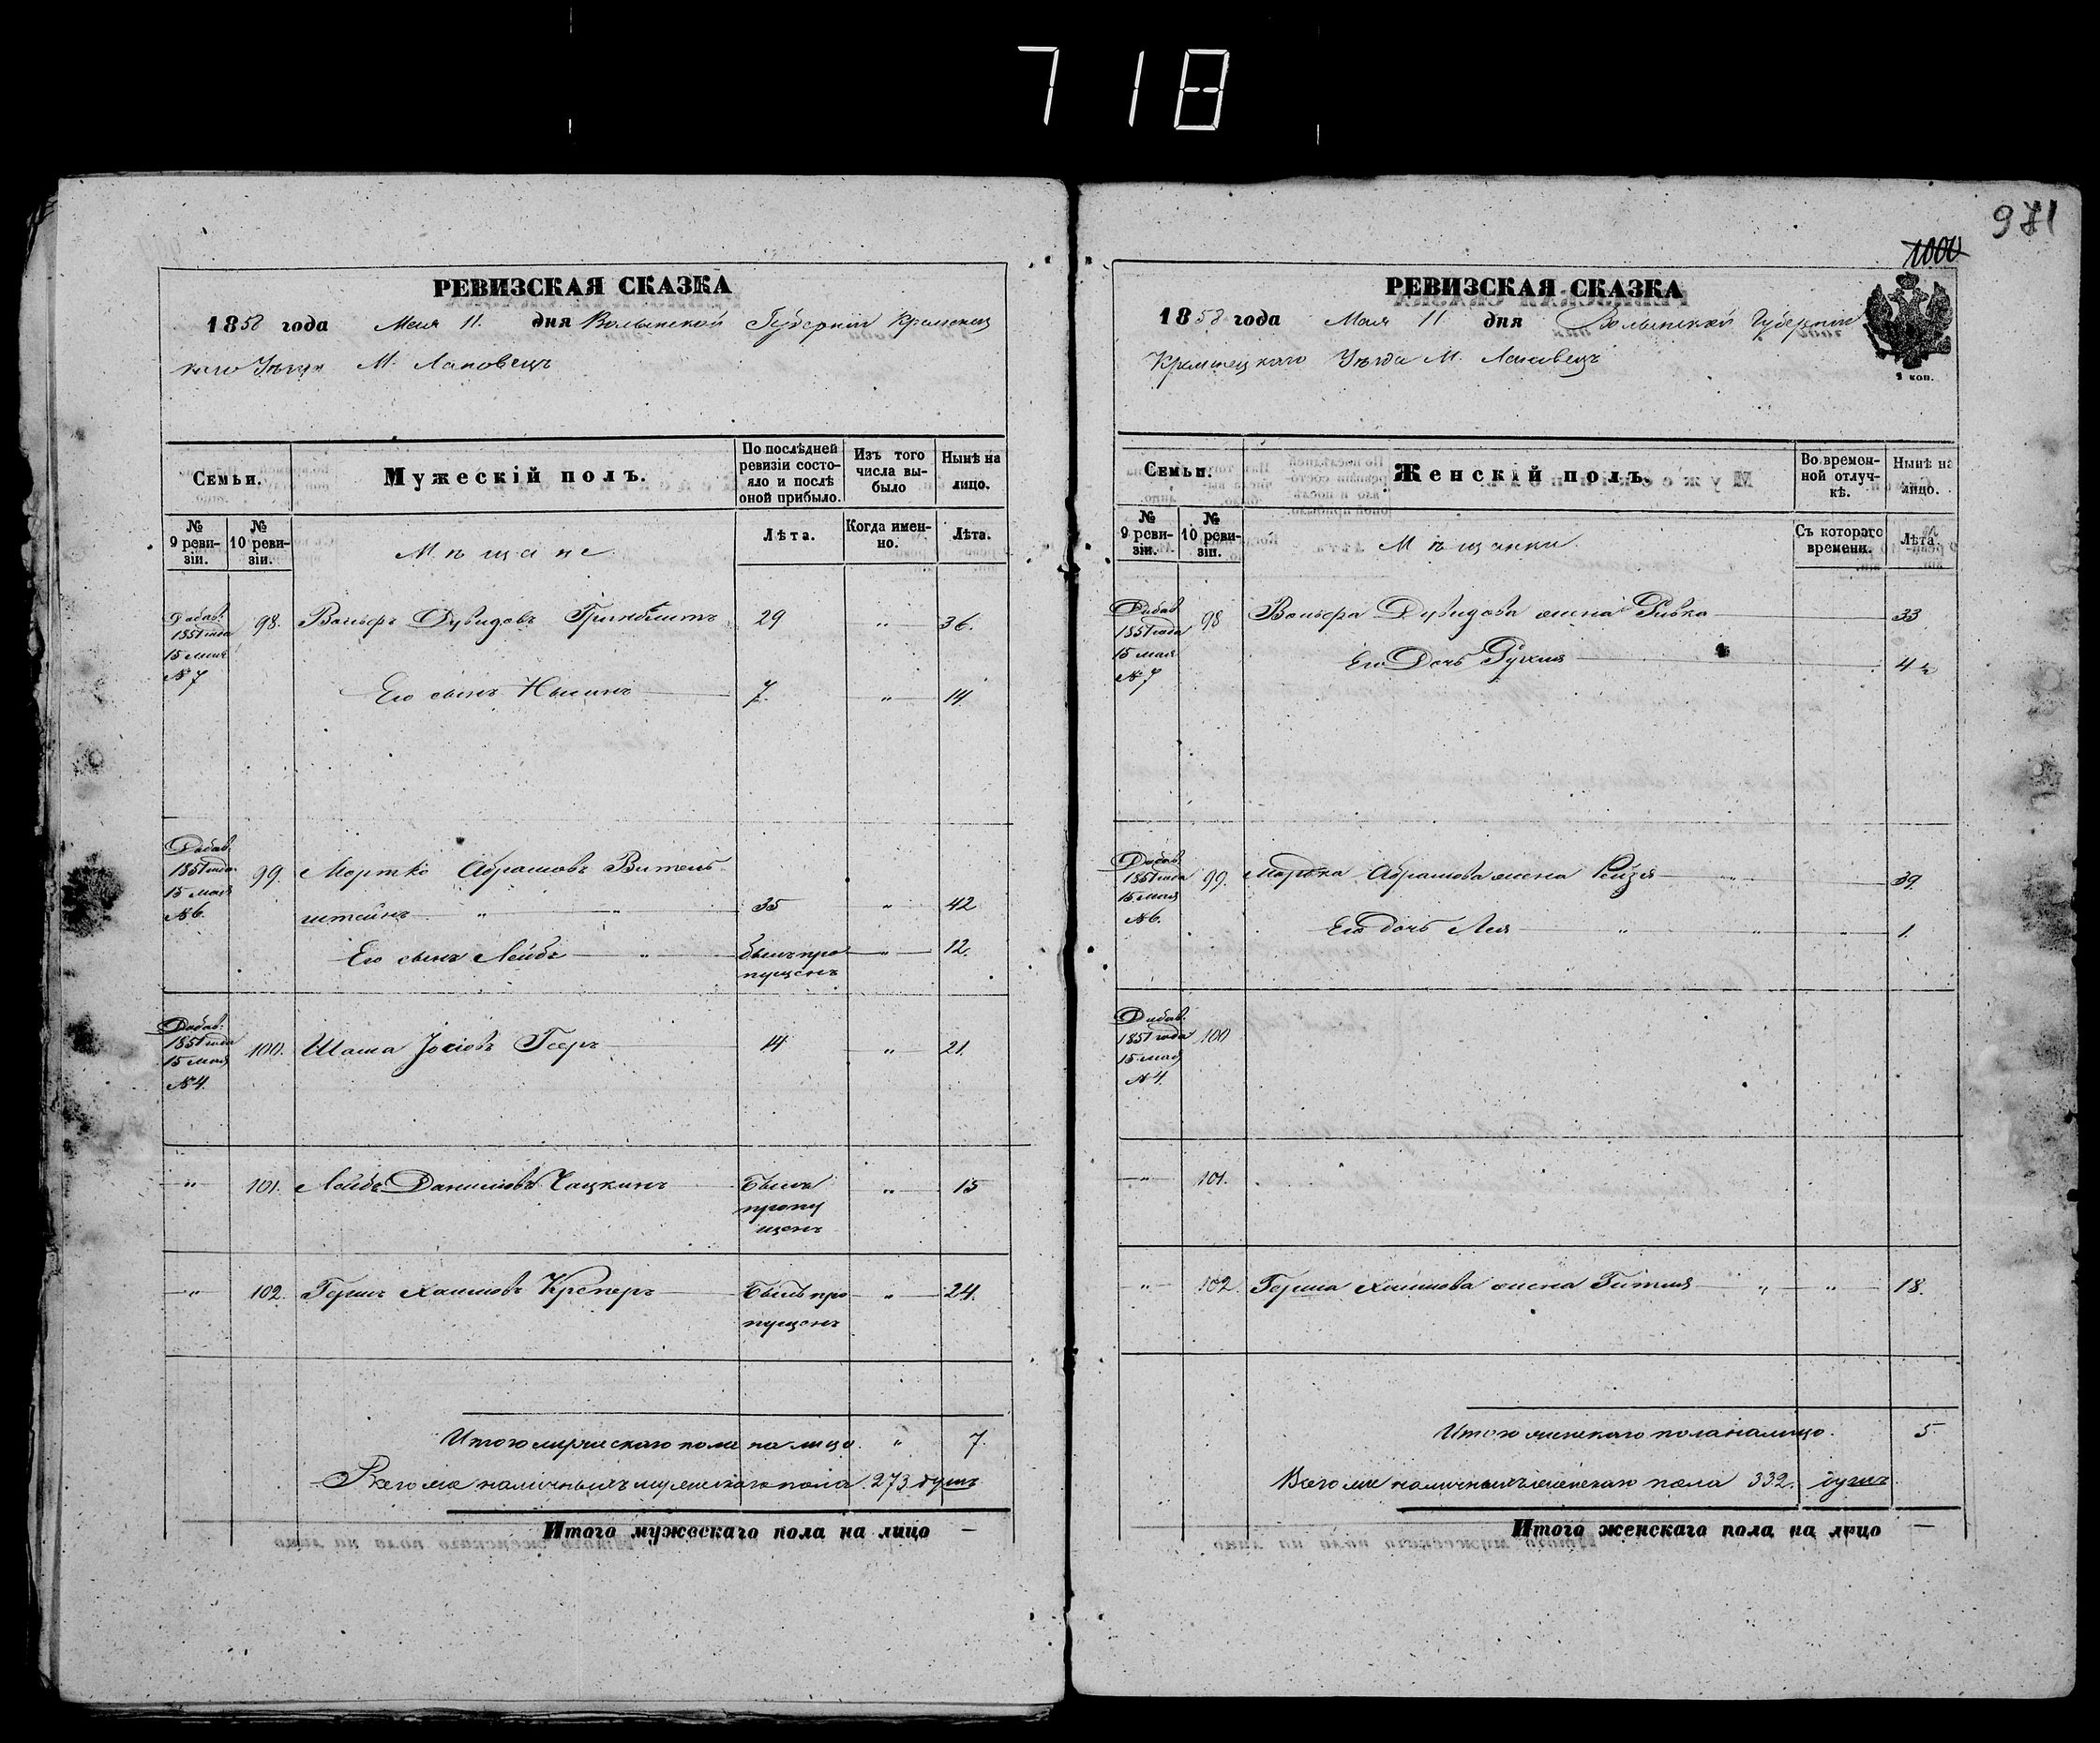 718
РЕВИЗСКАЯ СКАЗКА
1858 года Мая 11. дня Волынской Губерніи Кременец
каго Уѣзда М. Лановецъ
Семьи.
Мужескій полъ.
По послѣдней ревизіи состо-
яло и послѣ оной прибыло.
Изъ того числа вы-
было
Нынѣ на лицо.
№ 9 реви-
зіи.
№ 10 реви-
зіи.
Мѣщане
Лѣта.
Когда имен-
но.
Лѣта.
Добав. 1851 года 15 мая №7
98. Вольфъ Дувидовъ Гринблитъ 29 " 36.
Его сынъ Нысинъ 7. " 14.
Добав. 1851 года 15 мая №6.
99. Мортко Абрамовъ Витель
штейнъ " " 35 " 42
Его сынъ Лейбъ " былъ про " 12.
пущенъ
Добав. 1851 года 15 мая №4.
100. Шама Іосіовъ Гсеръ 14 " 21.
" 101. Лейбъ Даниловъ Чацкинъ Былъ " 15
пропу
щенъ
" 102. Гершъ Хаимовъ Креперъ Былъ про " 24.
пущенъ
Итого мужескаго пола на лицо. " 7.
Всего же наличныхъ мужескаго пола. 273 душъ
Итого мужескаго пола на лицо —
971
1000
РЕВИЗСКАЯ СКАЗКА
1858 года Мая 11 дня Волынской Губерніи
Кременецкаго Уѣзда М. Лановецъ
коп.
Семьи.
Женскій полъ.
Во времен-
ной отлуч-
кѣ.
Нынѣ на лицо.
№ 9 реви-
зіи.
№ 10 реви-
зіи.
Мѣщанки
Съ котораго времени.
Лѣта.
Добав. 1851 года 15 мая №7
98 Вольфа Дувидова жена Ривка 33
Его Дочь Рухля 4 ½
Добав. 1851 года 15 мая №6.
99. Мордка Абрамова жена Рейзя " 39.
Его дочь Лея " " " 1.
Добав. 1851 года 15 мая №4.
100
" 101.
" 102. Герша Хаимова жена Гитля " " 18.
Итого женскаго пола на лицо. 5.
Всего же наличныхъ женскаго пола 332. душъ
Итого женскаго пола на лицо —